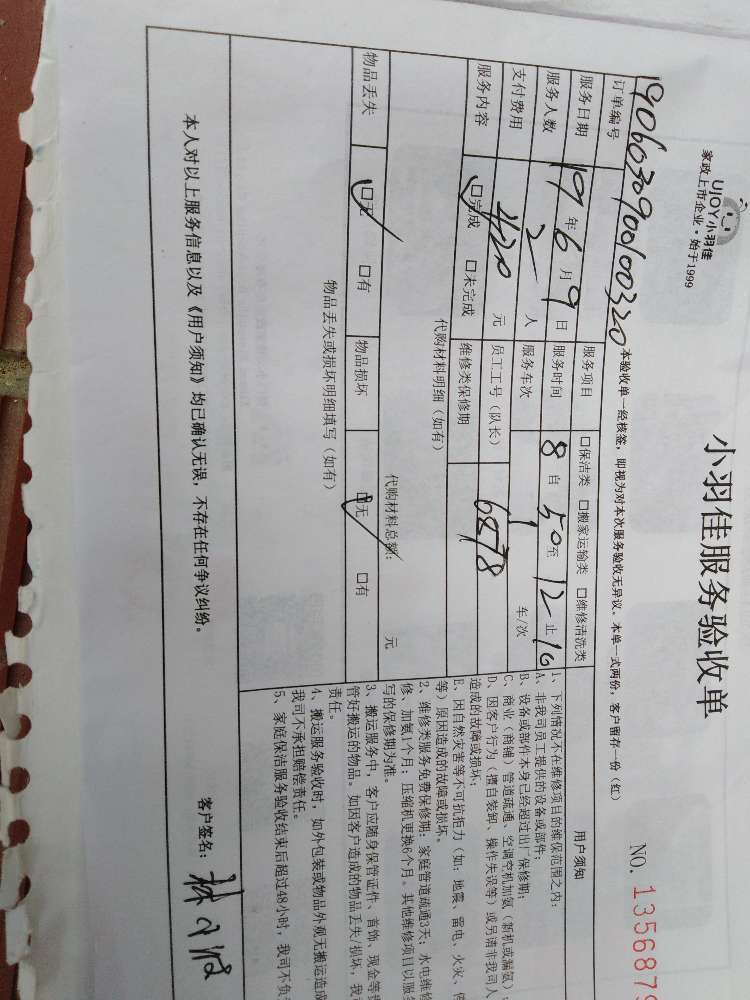 UJOY小羽佳
家政上市企业·始于1999
小羽佳服务验收单
NO. 1356879
本验收单一经核签,即视为对本次服务验收无异议。本单一式两份,客户留存一份(红)
订单编号 1906030900100320
服务项目 口保洁类 口搬家运输类 口维修清洗类
服务日期 19 年 6 月 9 日 服务时间 8 自 50 至 12 止 10
服务人数 2 人 服务车次 1 车/次
支付费用 420 元 员工工号(队长) 6878
服务内容 口完成 口未完成 维修类保修期
代购材料明细(如有)
代购材料总额: 元
物品丢失 口无 口有 物品损坏 口无 口有
物品丢失或损坏明细填写(如有)
用户须知
1、下列情况不在维修项目的维保范围之内:
A、非我司员工提供的设备或部件;
B、设备或部件本身已经超过出厂保修期;
C、商业(商铺)管道疏通、空调空机加氨(新机或漏氨);
D、因客户行为(擅自装卸、操作失误等)或另请非我司人
造成的故障或损坏;
E、因自然灾害等不可抗拒力(如:地震、雷电、火灾、
等)原因造成的故障或损坏。
2、维修类服务免费保修期:家庭管道疏通3天;水电维
修、加氨1个月;压缩机更换6个月。其他维修项目以服
写的保修期为准。
3、搬运服务中,客户应随身保管证件、首饰、现金等
管好搬运的物品。如因客户造成的物品丢失/损坏,我
责任。
4、搬运服务验收时,如外包装或物品外观无搬运造成
我司不承担赔偿责任。
5、家庭保洁服务验收结束后超过48小时,我司不负
本人对以上服务信息以及《用户须知》均已确认无误,不存在任何争议纠纷。
客户签名: 林小